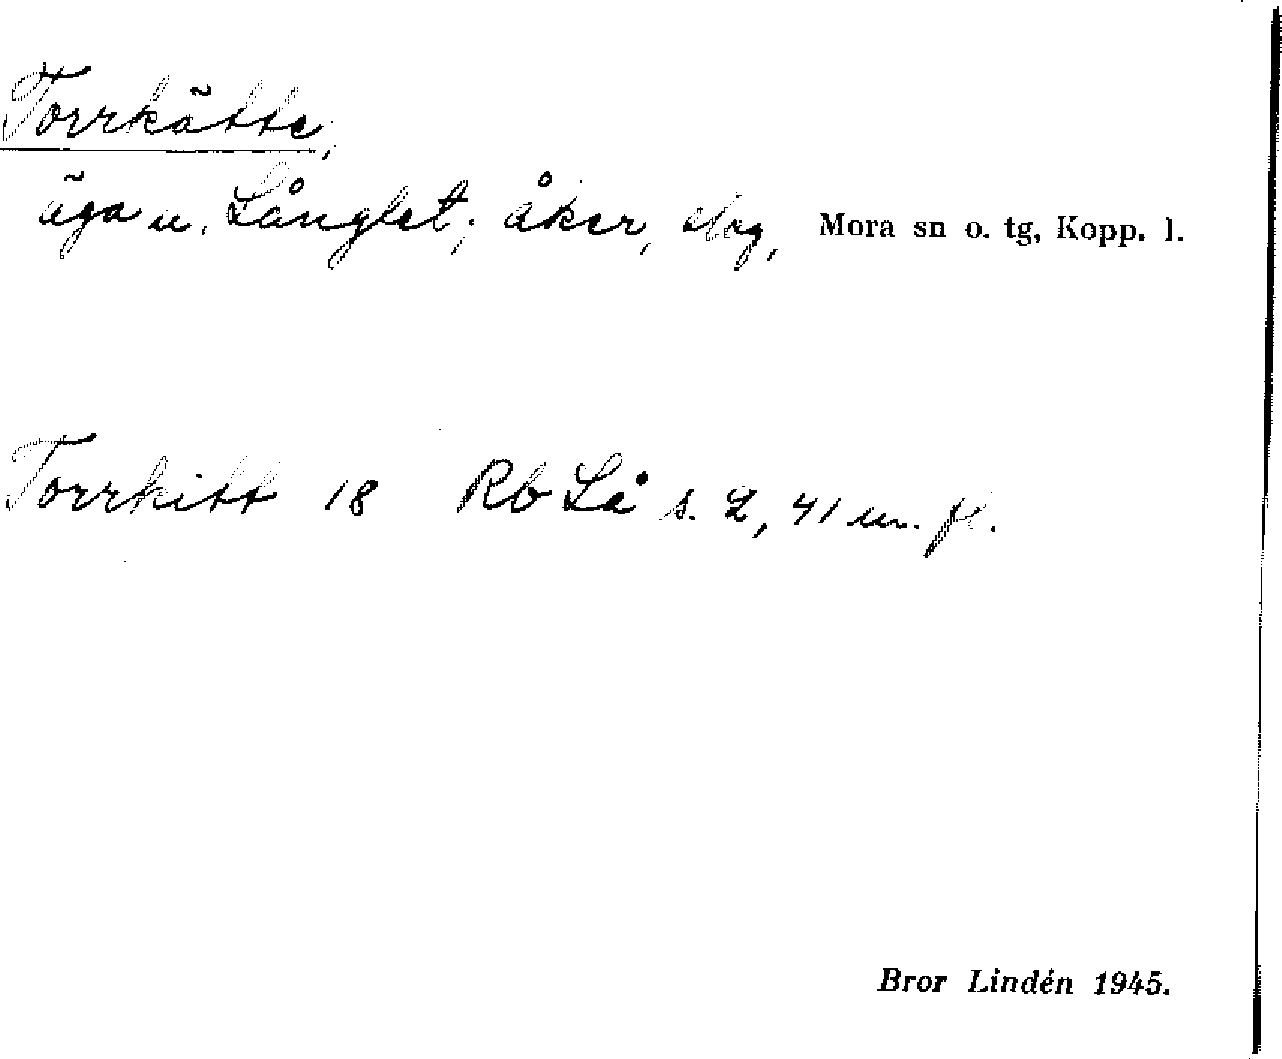 Torrkätte,
äga u. Långlet; åker, slog, Mora sn o. tg, Kopp. l.
Torrkitt 18 Rb Lå s. 2, 41 m. fl.
Bror Lindén 1945.